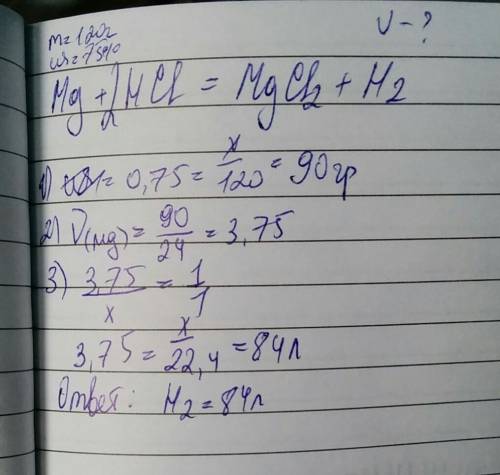 m=120г V-?
ω=75%
Mg+2HCl = MgCl2 + H2
1) = 0,75 = x/120 = 90гр
2) ν(Mg) = 90/24 = 3,75
3) 3,75/x = 1/1
3,75 = x/22,4 = 84л
Ответ: H2 = 84л